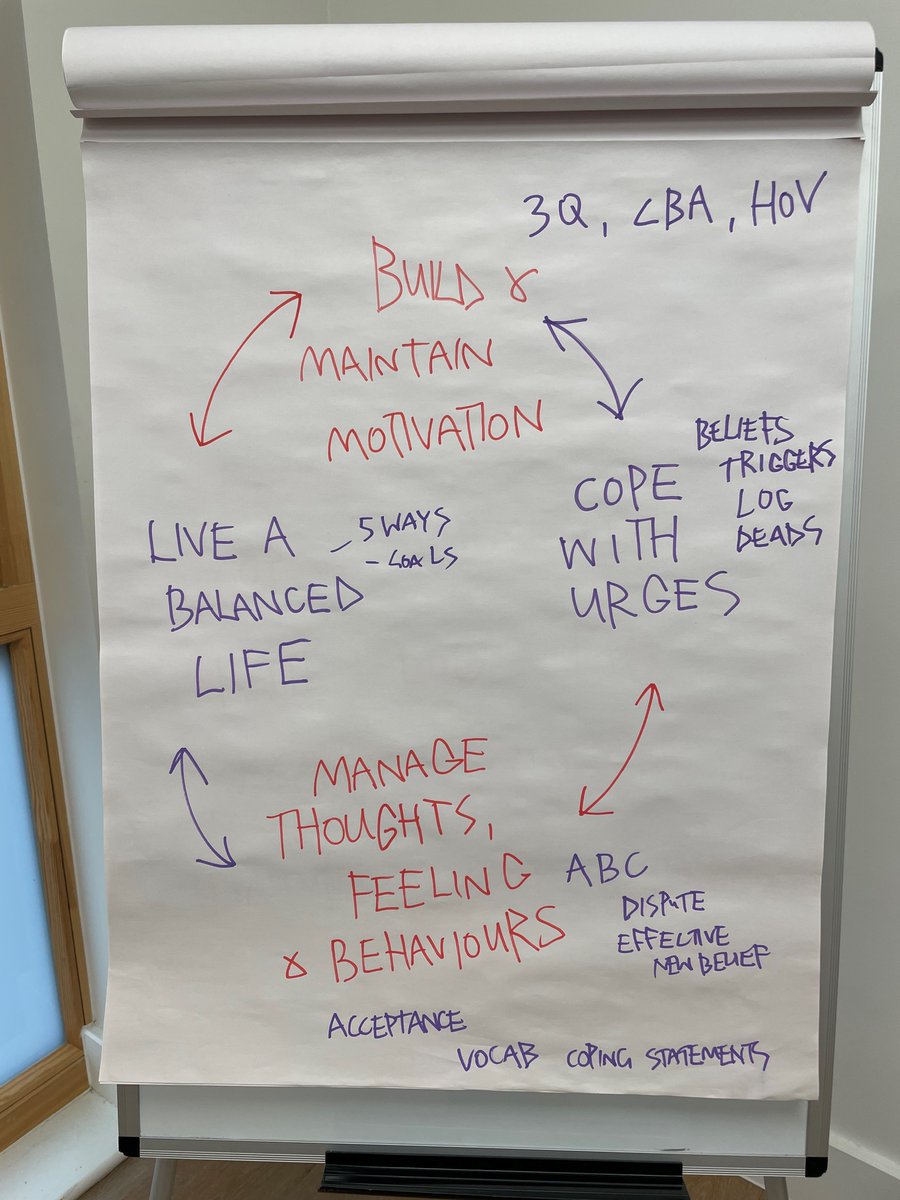 3Q, CBA, HOV
BUILD &
MAINTAIN
MOTIVATION
BELIEFS
TRIGGERS
LOG
DEADS
COPE
WITH
URGES
LIVE A
BALANCED
LIFE
- 5 WAYS
- GOALS
MANAGE
THOUGHTS,
FEELING
& BEHAVIOURS
ABC
DISPUTE
EFFECTIVE
NEW BELIEF
ACCEPTANCE
VOCAB COPING STATEMENTS